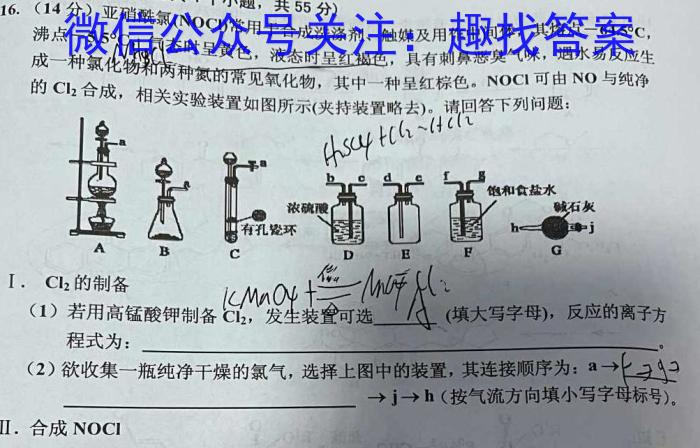 16. (14分) 亚硝酰氯(NOCl)常用
共 55 分)
微信公众号关注：趣找答案
沸点
态时呈黄色，液态时呈红褐色，具有刺鼻恶臭气味，遇水易反应生
成一种氯化物和两种氮的常见氧化物，其中一种呈红棕色。NOCl 可由 NO 与纯净
的 Cl₂ 合成，相关实验装置如图所示(夹持装置略去)。请回答下列问题：
a
a
a
b c d e f g
饱和食盐水
浓硫酸
碱石灰
有孔瓷环
h j
A B C D E F G
Ⅰ. Cl₂ 的制备
KMnO4 +
(1) 若用高锰酸钾制备 Cl₂，发生装置可选______(填大写字母)，反应的离子方
程式为：
(2) 欲收集一瓶纯净干燥的氯气，选择上图中的装置，其连接顺序为：a→
→j→h (按气流方向填小写字母标号)。
Ⅱ. 合成 NOCl